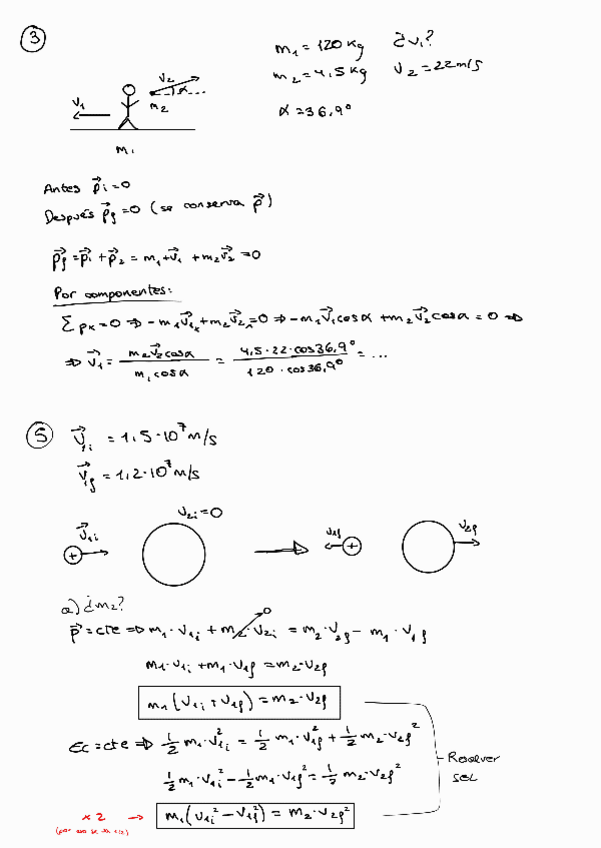 3
m₁ = 120 kg ¿v₁?
m₂ = 4,5 kg v₂ = 22 m/s
α = 36,9°
v₂
α
v₁
m₂
m₁
Antes p⃗i = 0
Después p⃗f = 0 (se conserva p⃗)
p⃗f = p⃗i + p⃗₂ = m₁ + v⃗₁ + m₂v⃗₂ = 0
Por componentes:
Σ pₓ = 0 ⇒ -m₁v⃗₁ₓ + m₂v⃗₂ₓ = 0 ⇒ -m₁v⃗₁cosα + m₂v⃗₂cosα = 0 ⇒
⇒ v⃗₁ = m₂v⃗₂cosα / m₁cosα = 4,5·22·cos36,9° / 120·cos36,9° = ...
5
v⃗₁i = 1,5·10⁷ m/s
v⃗₁f = 1,2·10⁷ m/s
v₂i = 0
v⃗₁i
v₁f
v₂f
+
+
a) ¿m₂?
p⃗ = cte ⇒ m₁·v₁i + m₂·v₂i = m₂·v₂f - m₁·v₁f
0
m₁·v₁i + m₁·v₁f = m₂·v₂f
m₁(v₁i + v₁f) = m₂·v₂f
Ec = cte ⇒ 1/2 m₁·v₁i² = 1/2 m₁·v₁f² + 1/2 m₂·v₂f²
Resolver
1/2 m₁·v₁i² - 1/2 m₁·v₁f² = 1/2 m₂·v₂f²
SEL
×2 → m₁(v₁i² - v₁f²) = m₂·v₂f²